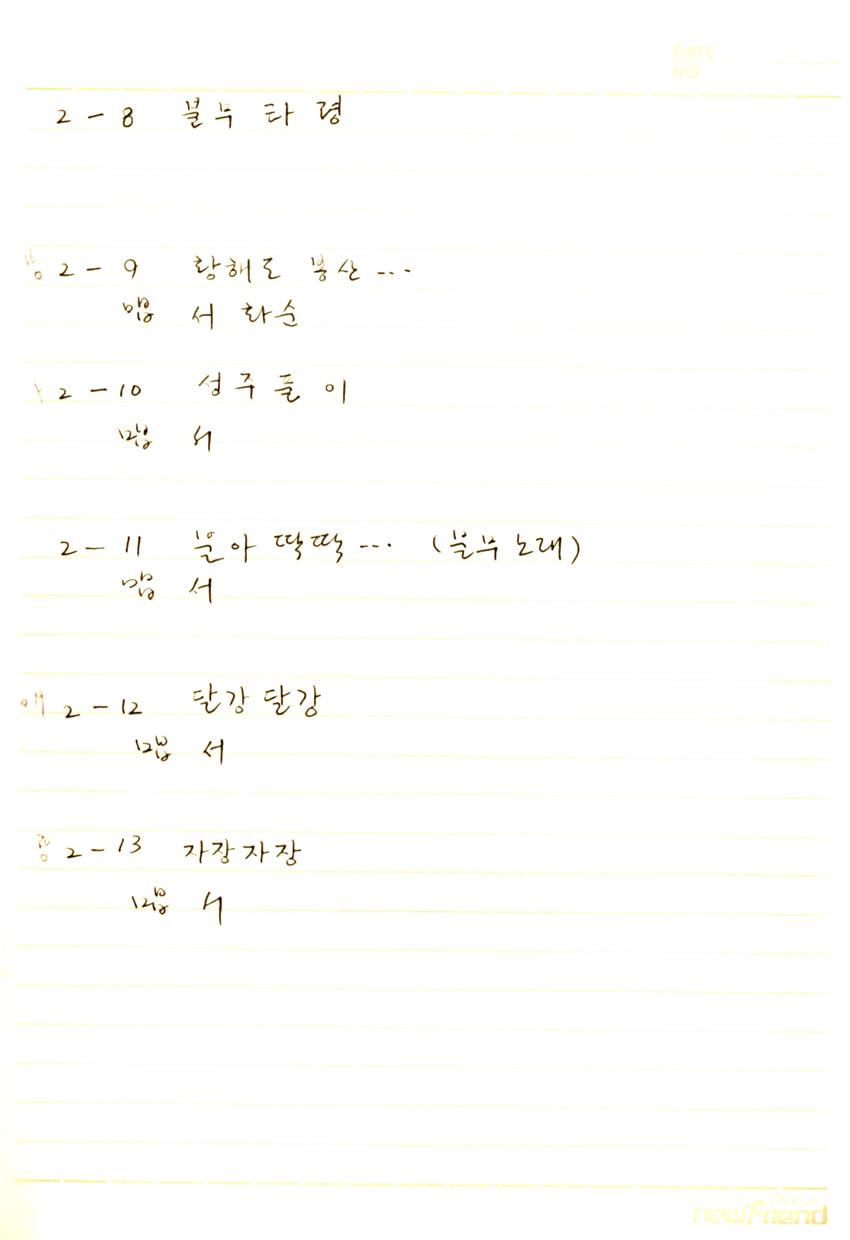 DATE
NO
2-8 불무타령
2-9 황해도 봉산...
서화순
2-10 성주풀이
서
2-11 불아 딱딱... (불무노래)
서
2-12 달강달강
서
2-13 자장자장
서
newfriend